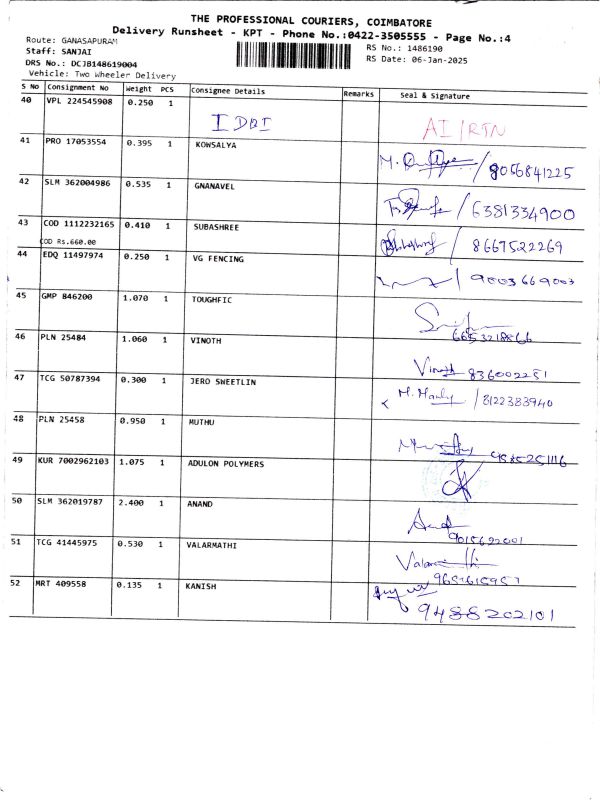 THE PROFESSIONAL COURIERS, COIMBATORE
Delivery Runsheet - KPT - Phone No.:0422-3505555 - Page No.:4
Route: GANASAPURAM
RS No.: 1486190
Staff: SANJAI
RS Date: 06-Jan-2025
DRS No.: DCJB148619004
Vehicle: Two Wheeler Delivery
S No Consignment No Weight PCS Consignee Details Remarks Seal & Signature
40 VPL 224545908 0.250 1 AI/RTN
41 PRO 17053554 0.395 1 KOWSALYA M. /8056841225
42 SLM 362004986 0.535 1 GNANAVEL /6381334900
43 COD 1112232165 0.410 1 SUBASHREE / 8667522269
COD Rs.660.00
44 EDQ 11497974 0.250 1 VG FENCING / 9003669003
45 GMP 846200 1.070 1 TOUGHFIC
46 PLN 25484 1.060 1 VINOTH Vinoth
47 TCG 50787394 0.300 1 JERO SWEETLIN /8122383940
48 PLN 25458 0.950 1 MUTHU
49 KUR 7002962103 1.075 1 ADULON POLYMERS
50 SLM 362019787 2.400 1 ANAND
51 TCG 41445975 0.530 1 VALARMATHI
52 MRT 409558 0.135 1 KANISH
9488202101